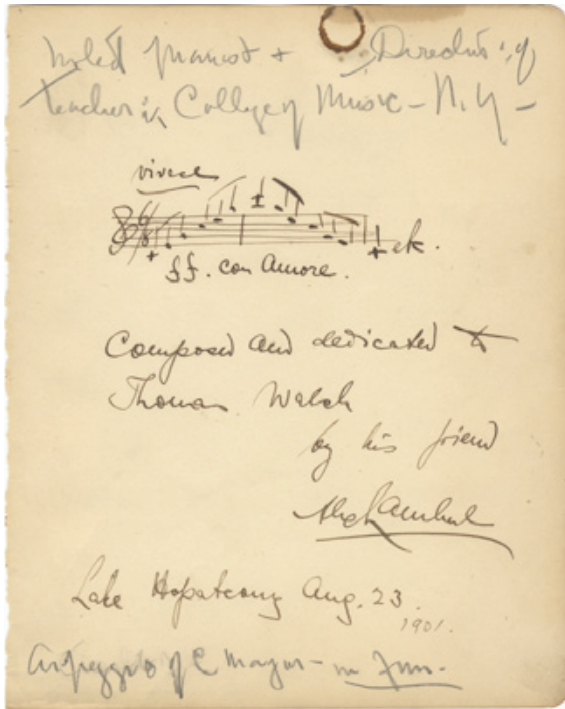 Noted pianist + Director of
Teacher in College of Music - N.Y -
vivace
ff. con Amore.
etc.
Composed and dedicated to
Thomas Welch
by his friend
Alex Lambert
Lake Hopatcong Aug. 23.
1901.
Arpeggio of C Mayor - in fun.